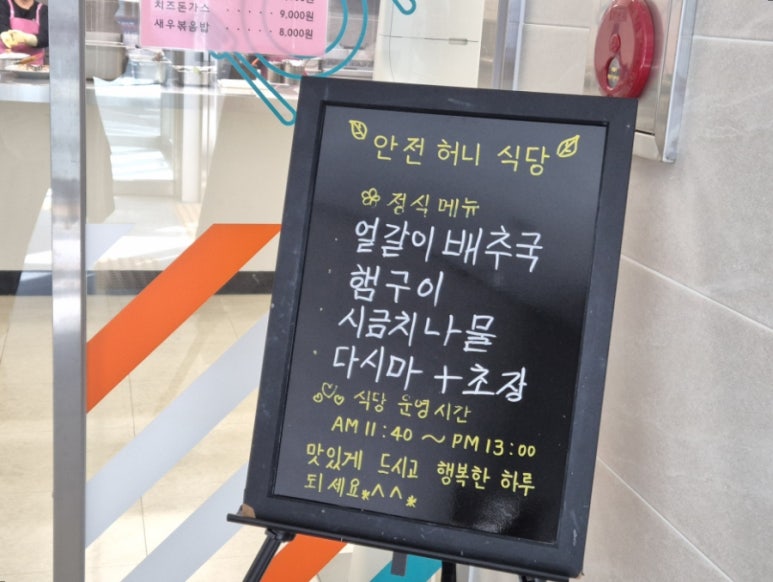 치즈돈가스 ····· 9,000원
새우볶음밥 ····· 8,000원
안전 허니 식당
정식메뉴
얼갈이배추국
햄구이
시금치나물
다시마 + 초장
식당 운영시간
AM 11:40 ~ PM 13:00
맛있게 드시고 행복한 하루
되세요*^^*